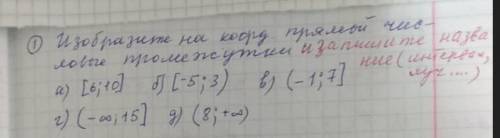 ① Изобразите на коорд прямой чис-
ловые промежутки и запишите назва
ние (интервал,
луч...)
а) [6;10] б) [-5;3) в) (-1;7]
г) (-∞;15] д) (8;+∞)